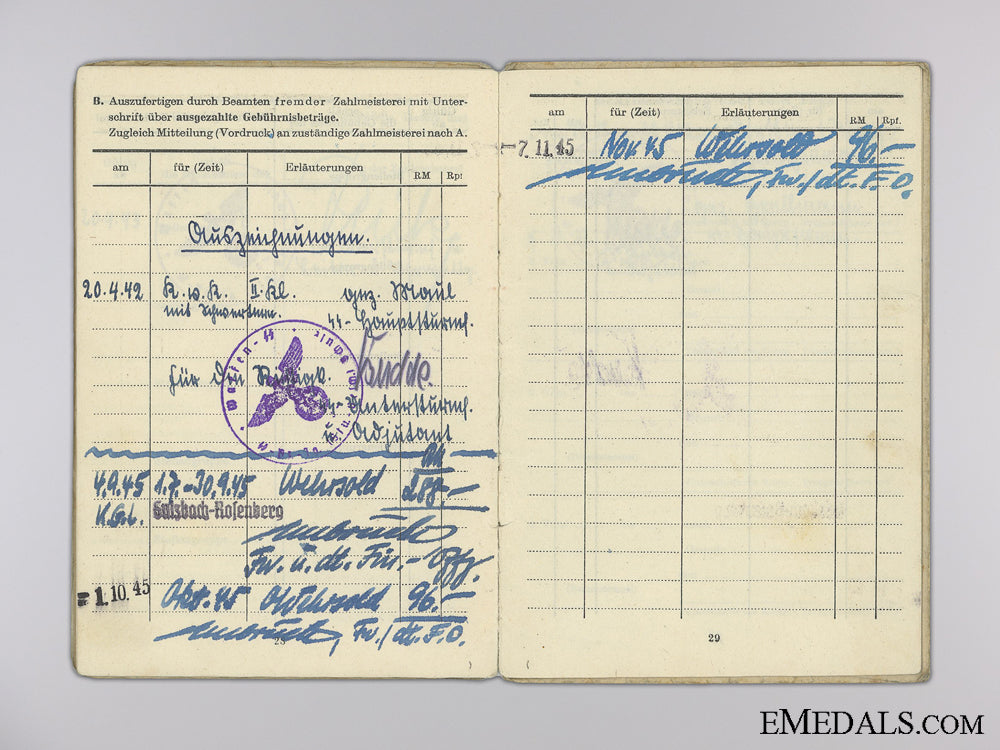 B. Auszufertigen durch Beamten fremder Zahlmeisterei mit Unter-
schrift über ausgezahlte Gebührnisbeträge.
Zugleich Mitteilung (Vordruck) an zuständige Zahlmeisterei nach A.
am für (Zeit) Erläuterungen RM Rpf.
Auszeichnungen.
20.4.42 K.v.K. II. Kl. gez. Maul
mit Schwertern. SS-Hauptsturmf.
Für den
SS-Untersturmf.
u. Adjutant
Waffen-SS
RM
4.9.45 1.7.-30.9.45 Wehrsold 288.-
K.G.L. Sulzbach-Rosenberg
Fw. u. dt. Fin.-Offz.
1.10.45 Okt. 45 Wehrsold 96.-
Fw./dt. F.O.
28
am für (Zeit) Erläuterungen RM Rpf.
-7.11.45 Nov. 45 Wehrsold 96.-
Fw./dt. F.O.
29
EMEDALS.COM